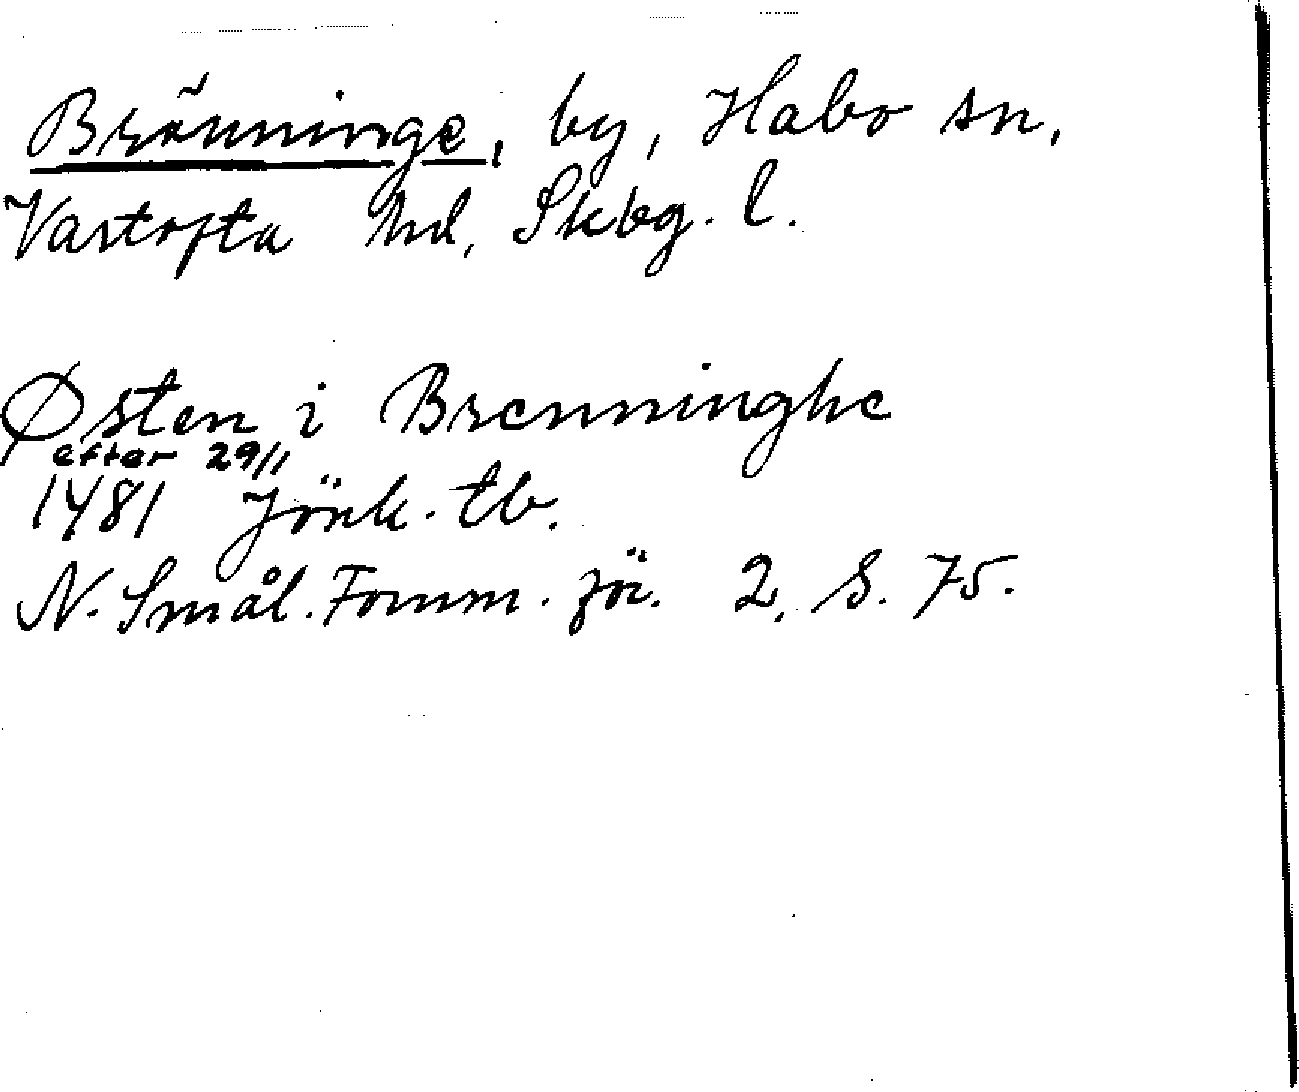 Bränninge, by, Habo sn,
Vartofta hd, Skbg. l.
Østen i Brenninghe
efter 29/11
1481 Jönk. tb.
N. Smål. Fornm. för. 2, S. 75.